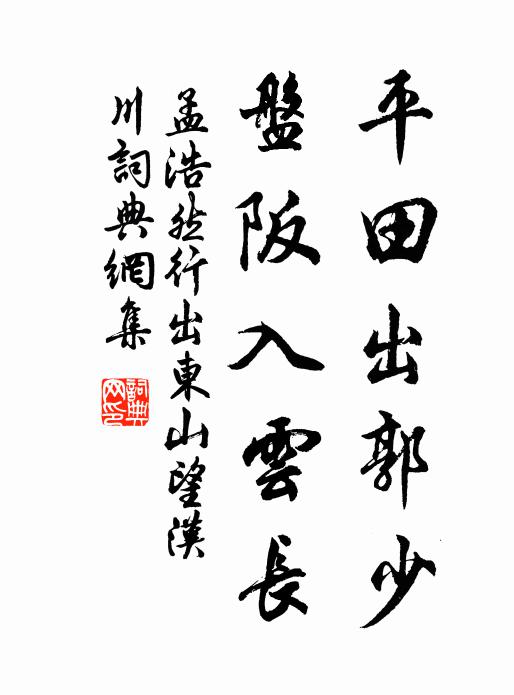 平田出郭少
盤阪入雲長
孟浩然行出東山望漢
川詞典網集
詞典
网印